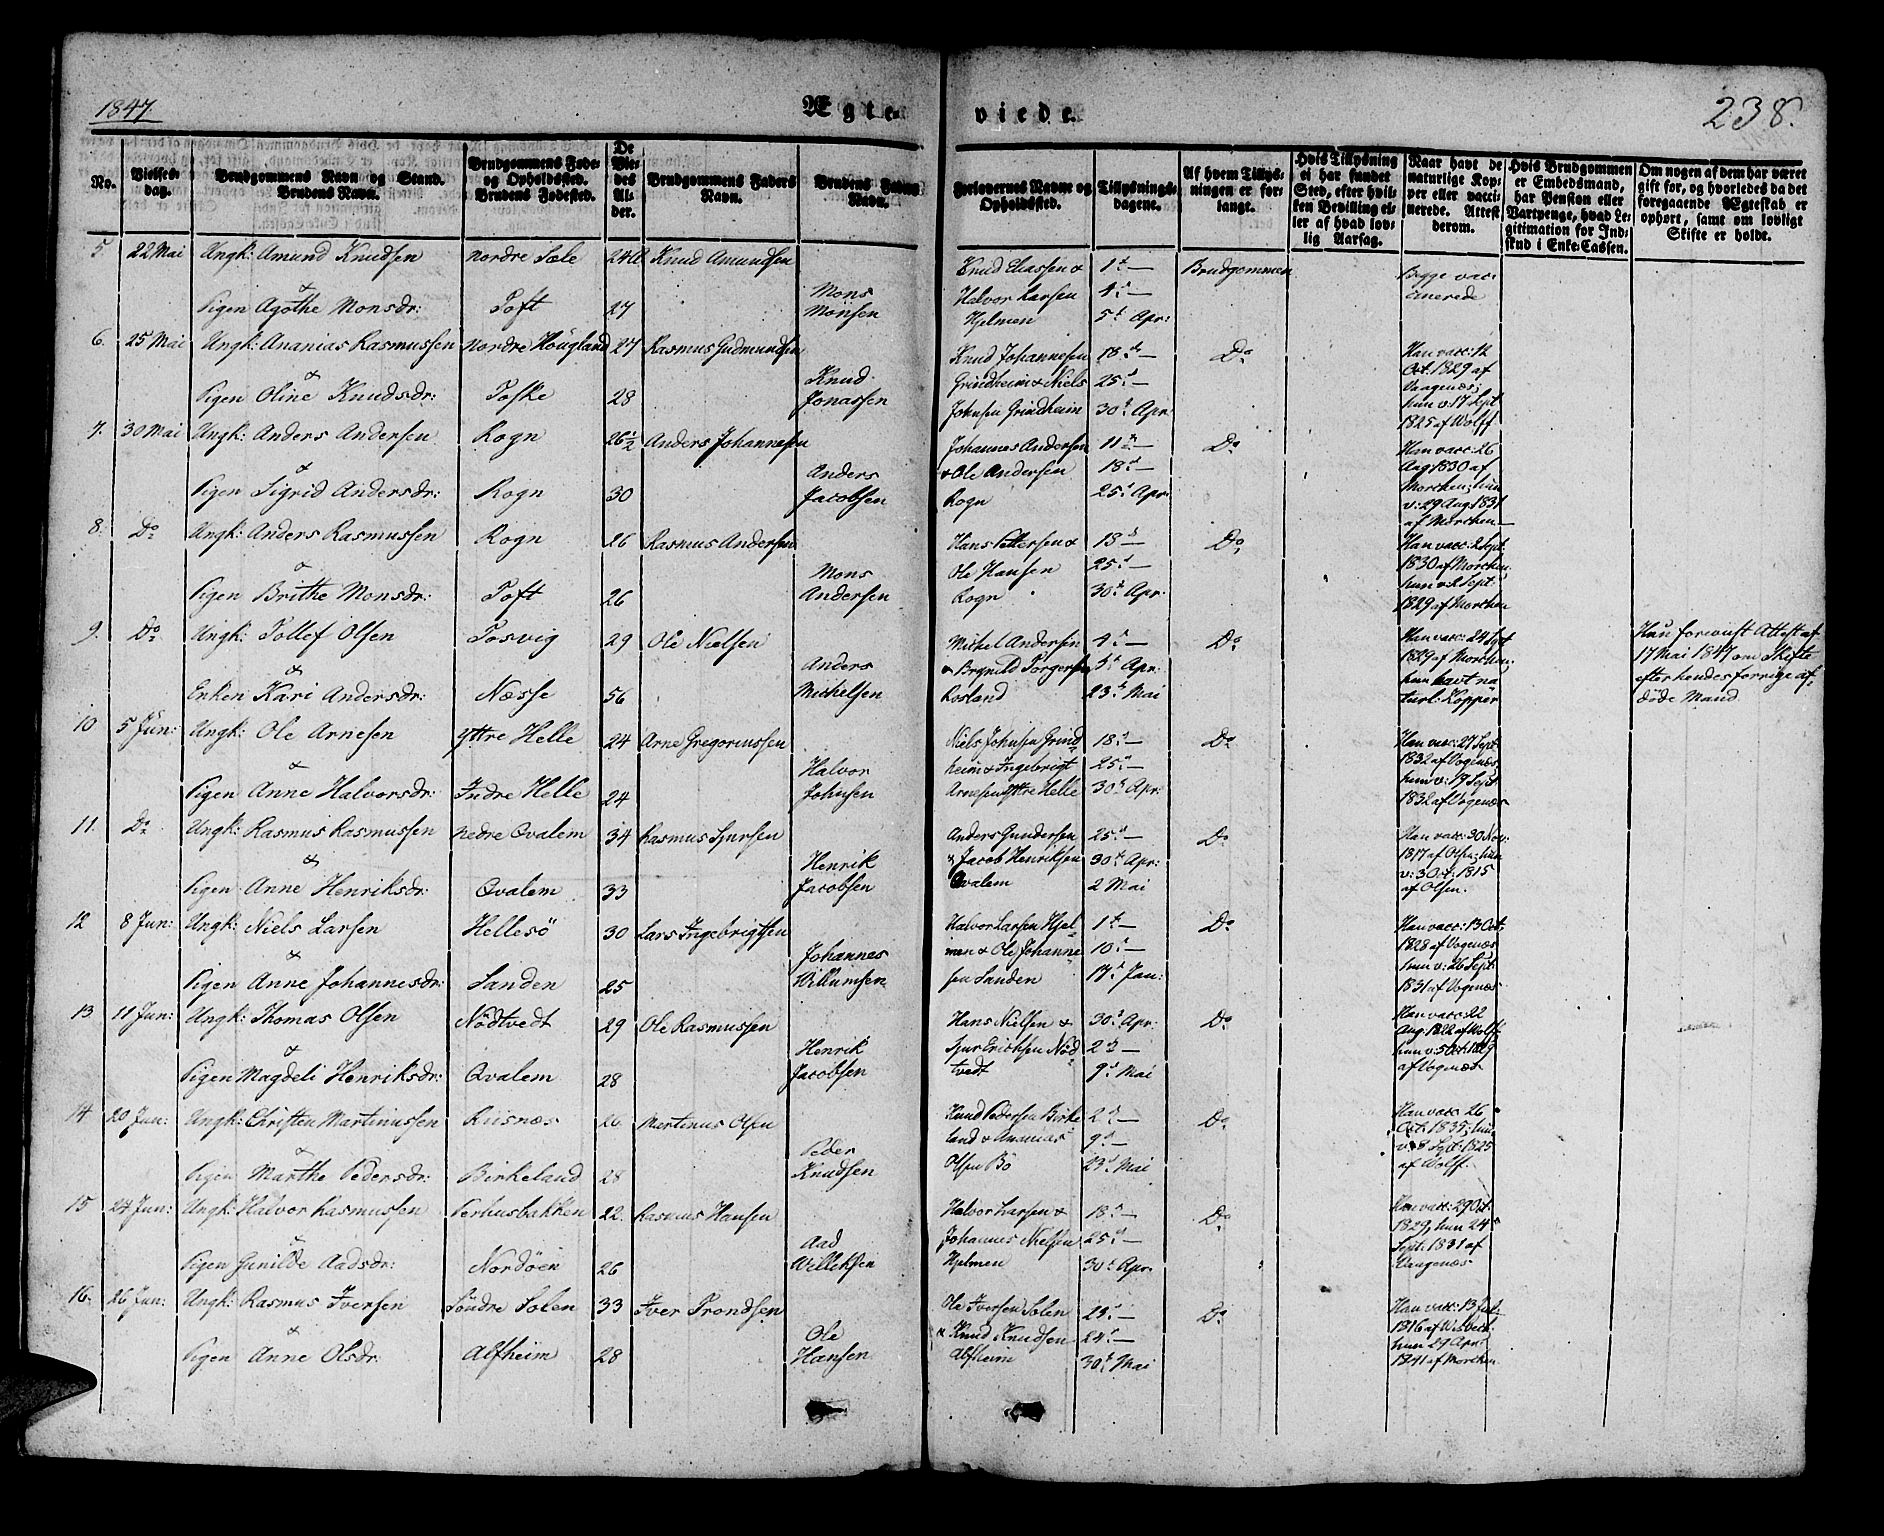 1847.
Ægteviede.
238.
No.
Vielses-dag.
Brudgommens Navn og Stand. Brudens Navn.
Brudgommens Føde- og Opholdssted. Brudens Fødested.
De Viedes Alder.
Brudgommens Faders Navn.
Brudens Faders Navn.
Forlovernes Navne og Opholdssted.
Tillysnings-dagene.
Af hvem Tillysningen er forlangt.
Hvis Tillysning ei har fundet Sted, efter hvilken Bevilling eller af hvad lovlig Aarsag.
Naar havt de naturlige Kopper eller vaccinerede. Attest derom.
Hvis Brudgommen er Embedsmand, har Pension eller Vartpenge, hvad Legitimation for Indskud i Enke-Cassen.
Om nogen af dem har været gift for, og hvorledes da det foregaaende Ægteskab er ophørt, samt om lovligt Skifte er holdt.
5. 22 Mai Ungk: Amund Knudsen nordre Sæle 24 Knud Amundsen Knud Eliassen & 1ste — Brudgommen Begge vac-
& Mons Halvor Larsen 4d — cinerede
Pigen Agothe Monsdr: Toft 27 Monsen Hjelmen 5t Apr:
6. 25 Mai Ungk: Ananias Rasmussen nordre Höugland 27 Rasmus Gudmundsen Knud Johannesen 18de — Do Han vacc: 12
& Knud Grindheim & Niels 25d — Oct: 1829 af
Pigen Oline Knudsdr: Toske 28 Jonassen Johnsen Grindheim 30t Apr: Vaagenæs;
hun v: 17 Sept
1825 af Wolff
7. 30 Mai Ungk: Anders Andersen Rogn 26½ Anders Johannesen Johannes Andersen 11te — Do Han vacc: 26
& Anders & Ole Andersen 18d — Aug 1830 af
Pigen Sigrid Andersdr: Rogn 30 Jacobsen Rogn 25d Apr: Morchen; hun
v: 29 Aug 1831
af Morchen —
8. Do Ungk: Anders Rasmussen Rogn 26 Rasmus Andersen Hans Pettersen & 18d — Do Han vacc: 2 Sept:
& Mons Ole Hansen 25d — 1830 af Morchen
Pigen Brithe Monsdr: Toft 26 Andersen Rogn 30t Apr: hun v. 2 Sept:
1829 af Morchen
9. Do Ungk: Tollef Olsen Tosvig 29 Ole Nielsen Michel Andersen 4d — Do Han vacc: 24 Sept Hun foreviist Attest af
& Anders & Brynild Torgersen 5t Apr: 1829 af Morchen: 17 Mai 1847 om Skifte
Enken Kari Andersdr: Næsse 56 Michelsen Rosland 23d Mai hun havt na- efter hendes forrige af-
turl: Kopper döde Mand
10 5 Jun: Ungk: Ole Arnesen Yttre Helle 24 Arne Gregoriussen Niels Johnsen Grind- 18d — Do Han vacc: 27 Sept
& Halvor heim & Ingebrigt 25d — 1832 af Vogenæs
Pigen Anne Halvorsdr: Indre Helle 24 Johnsen Arnesen Yttre Helle 30t Apr: hun v: 19 Sept
1832 af Vogenæs
11. Do Ungk: Rasmus Rasmussen nedre Qvalem 34 Rasmus Sjursen Anders Gundersen 25d — Do Han vacc: 30 Nov:
& Henrik & Jacob Henriksen 30t Apr: 1817 af Olsen; hun
Pigen Anne Henriksdr: Qvalem 33 Jacobsen Qvalem 2 Mai v: 3 Oct: 1815
af Olsen.
12 8 Jun: Ungk: Niels Larsen Hellesö 30 Lars Ingebrigtsen Halvor Larsen Hjel- 1t — Do Han vacc: 13 Oct:
& Johannes men & Ole Johanne- 10d — 1828 af Vogenæs
Pigen Anne Johannesdr: Sanden 25 Willumsen sen Sanden 17d Jan: hun v: 26 Sept:
1831 af Vogenæs
13 11 Jun: Ungk: Thomas Olsen Nödtvedt 29 Ole Rasmussen Hans Nielsen & 30t Apr: Do Han vacc: 22
& Henrik Sjur Erichsen Nöd- 2d — Aug: 1822 af Wolff
Pigen Magdeli Henriksdr: Qvalem 28 Jacobsen tvedt 9d Mai hun v: 5 Oct: 1829
af Vogenæs
14 20 Jun: Ungk: Christen Martinussen Riisnæs 26 Martinus Olsen Knud Pedersen Birke- 2d — Do Han vacc: 26
& Peder land & Ananias 9d — Oct: 1839; hun
Pigen Marthe Pedersdr: Birkeland 28 Knudsen Olsen Bö 23d Mai v. 8 Sept: 1825
af Wolff.
15 24 Jun: Ungk: Halvor Rasmussen Perhusbakken 22. Rasmus Hansen Halvor Larsen & 18d — Do Han vacc: 29 Oct:
& Aad Johannes Nielsen 25d — 1829, hun 24
Pigen Gunilde Aadsdr: Nordöen 26 Willeksen Hjelmen 30t Apr: Sept: 1831 af
Vaagenæs
16. 26 Jun: Ungk: Rasmus Iversen Söndre Solen 33 Iver Trondsen Ole Iversen Solen 23d — Do Han vacc: 13
& Ole & Knud Knudsen 24d — 1816 af
Pigen Anne Olsdr: Alfheim 28 Hansen Alfheim 30t Mai hun 29 Apr:
1841 af Morchen